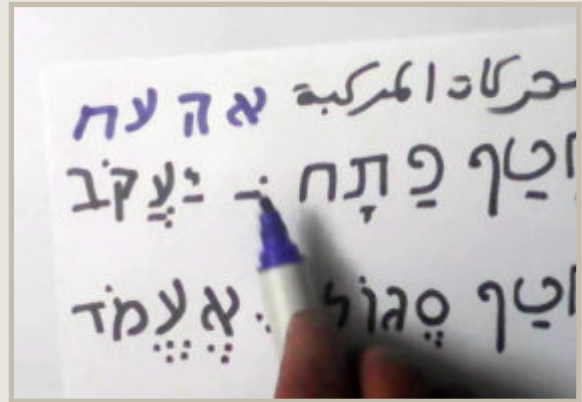 حركات المركبة א ה ע ח
חֲטַף פַתָח יַעֲקֹב
חֲטַף סֶגוֹל אֶעֱמֹד